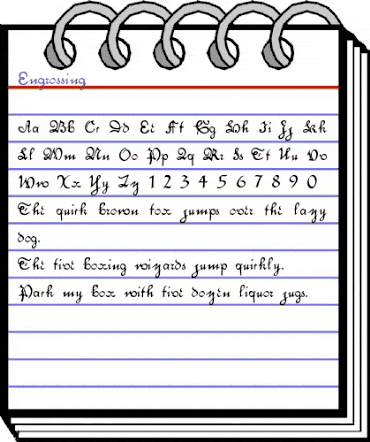 Engrossing
Aa Bb Cc Dd Ee Ff Gg Hh Ii Jj Kk
Ll Mm Nn Oo Pp Qq Rr Ss Tt Uu Vv
Ww Xx Yy Zz 1 2 3 4 5 6 7 8 9 0
The quick brown fox jumps over the lazy
dog.
The five boxing wizards jump quickly.
Pack my box with five dozen liquor jugs.